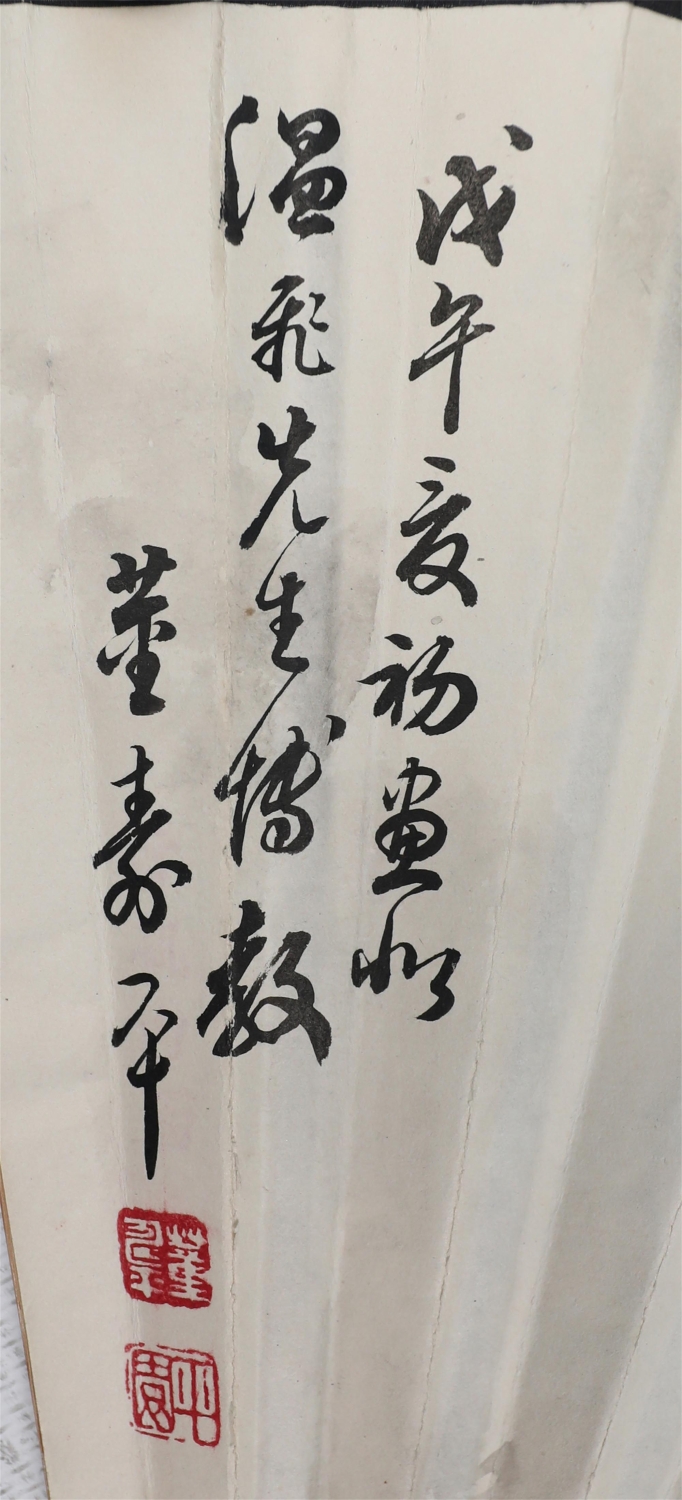 戊午夏初画松
温飛先生博教
董寿平